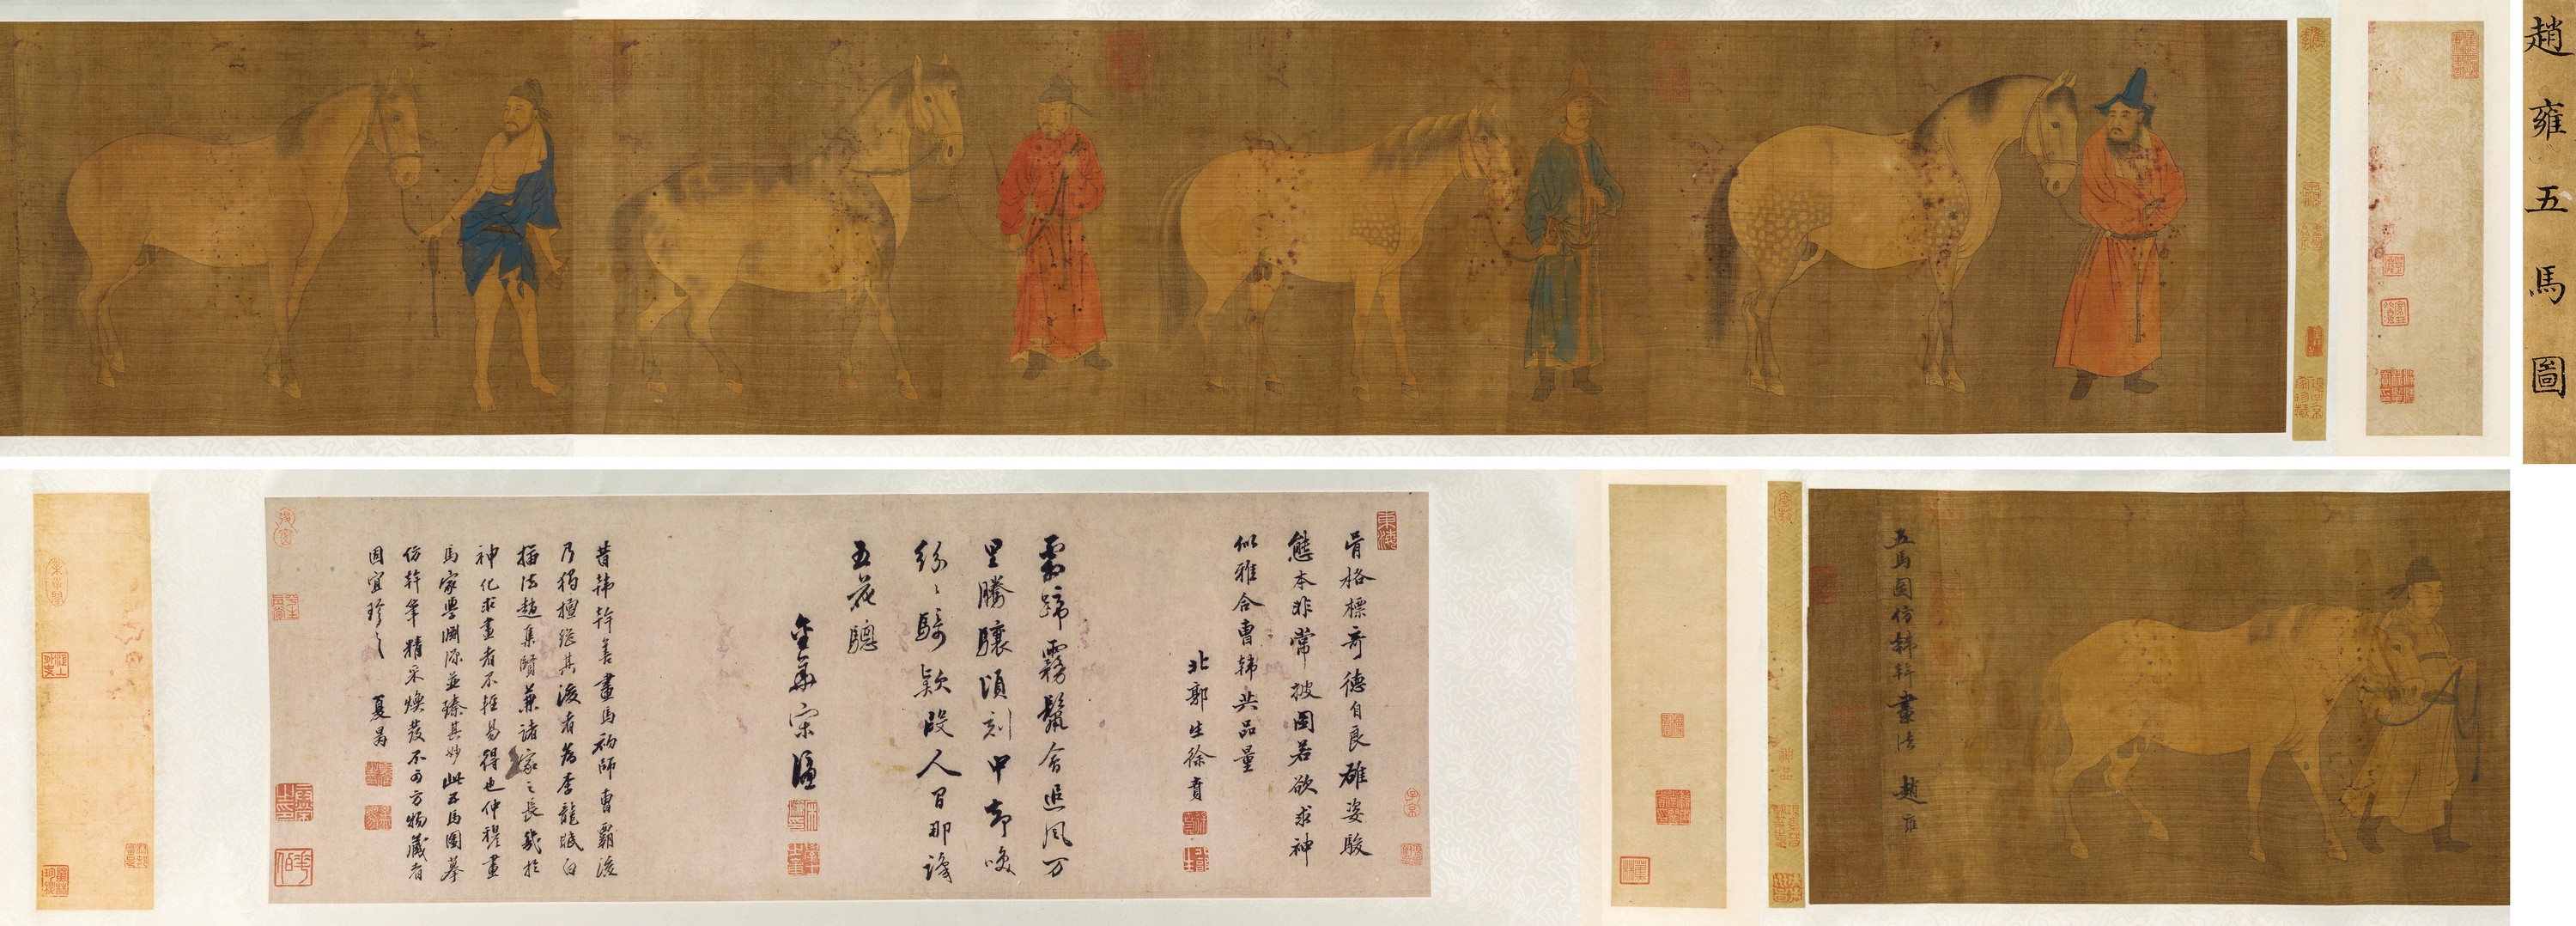 趙雍五馬圖
五馬圖仿韓幹畫法 趙雍
骨格標奇德自良雄姿駿
態本非常披圖若欲求神
似雅合曹韓共品量
北郭生徐賁
霜蹄霧鬣合追風万
里騰驤頃刻中却喚
紛〻騎款段人間那識
五花驄
金華宋濂
昔韓幹善畫馬初師曹霸後
乃獨擅繼其後者為李龍眠白
描法趙集賢兼諸家之長幾於
神化求畫者不輕易得也仲穆畫
馬家學淵源並臻其妙此五馬圖摹
仿幹筆精采煥發不可方物藏者
固宜珍之
夏昺